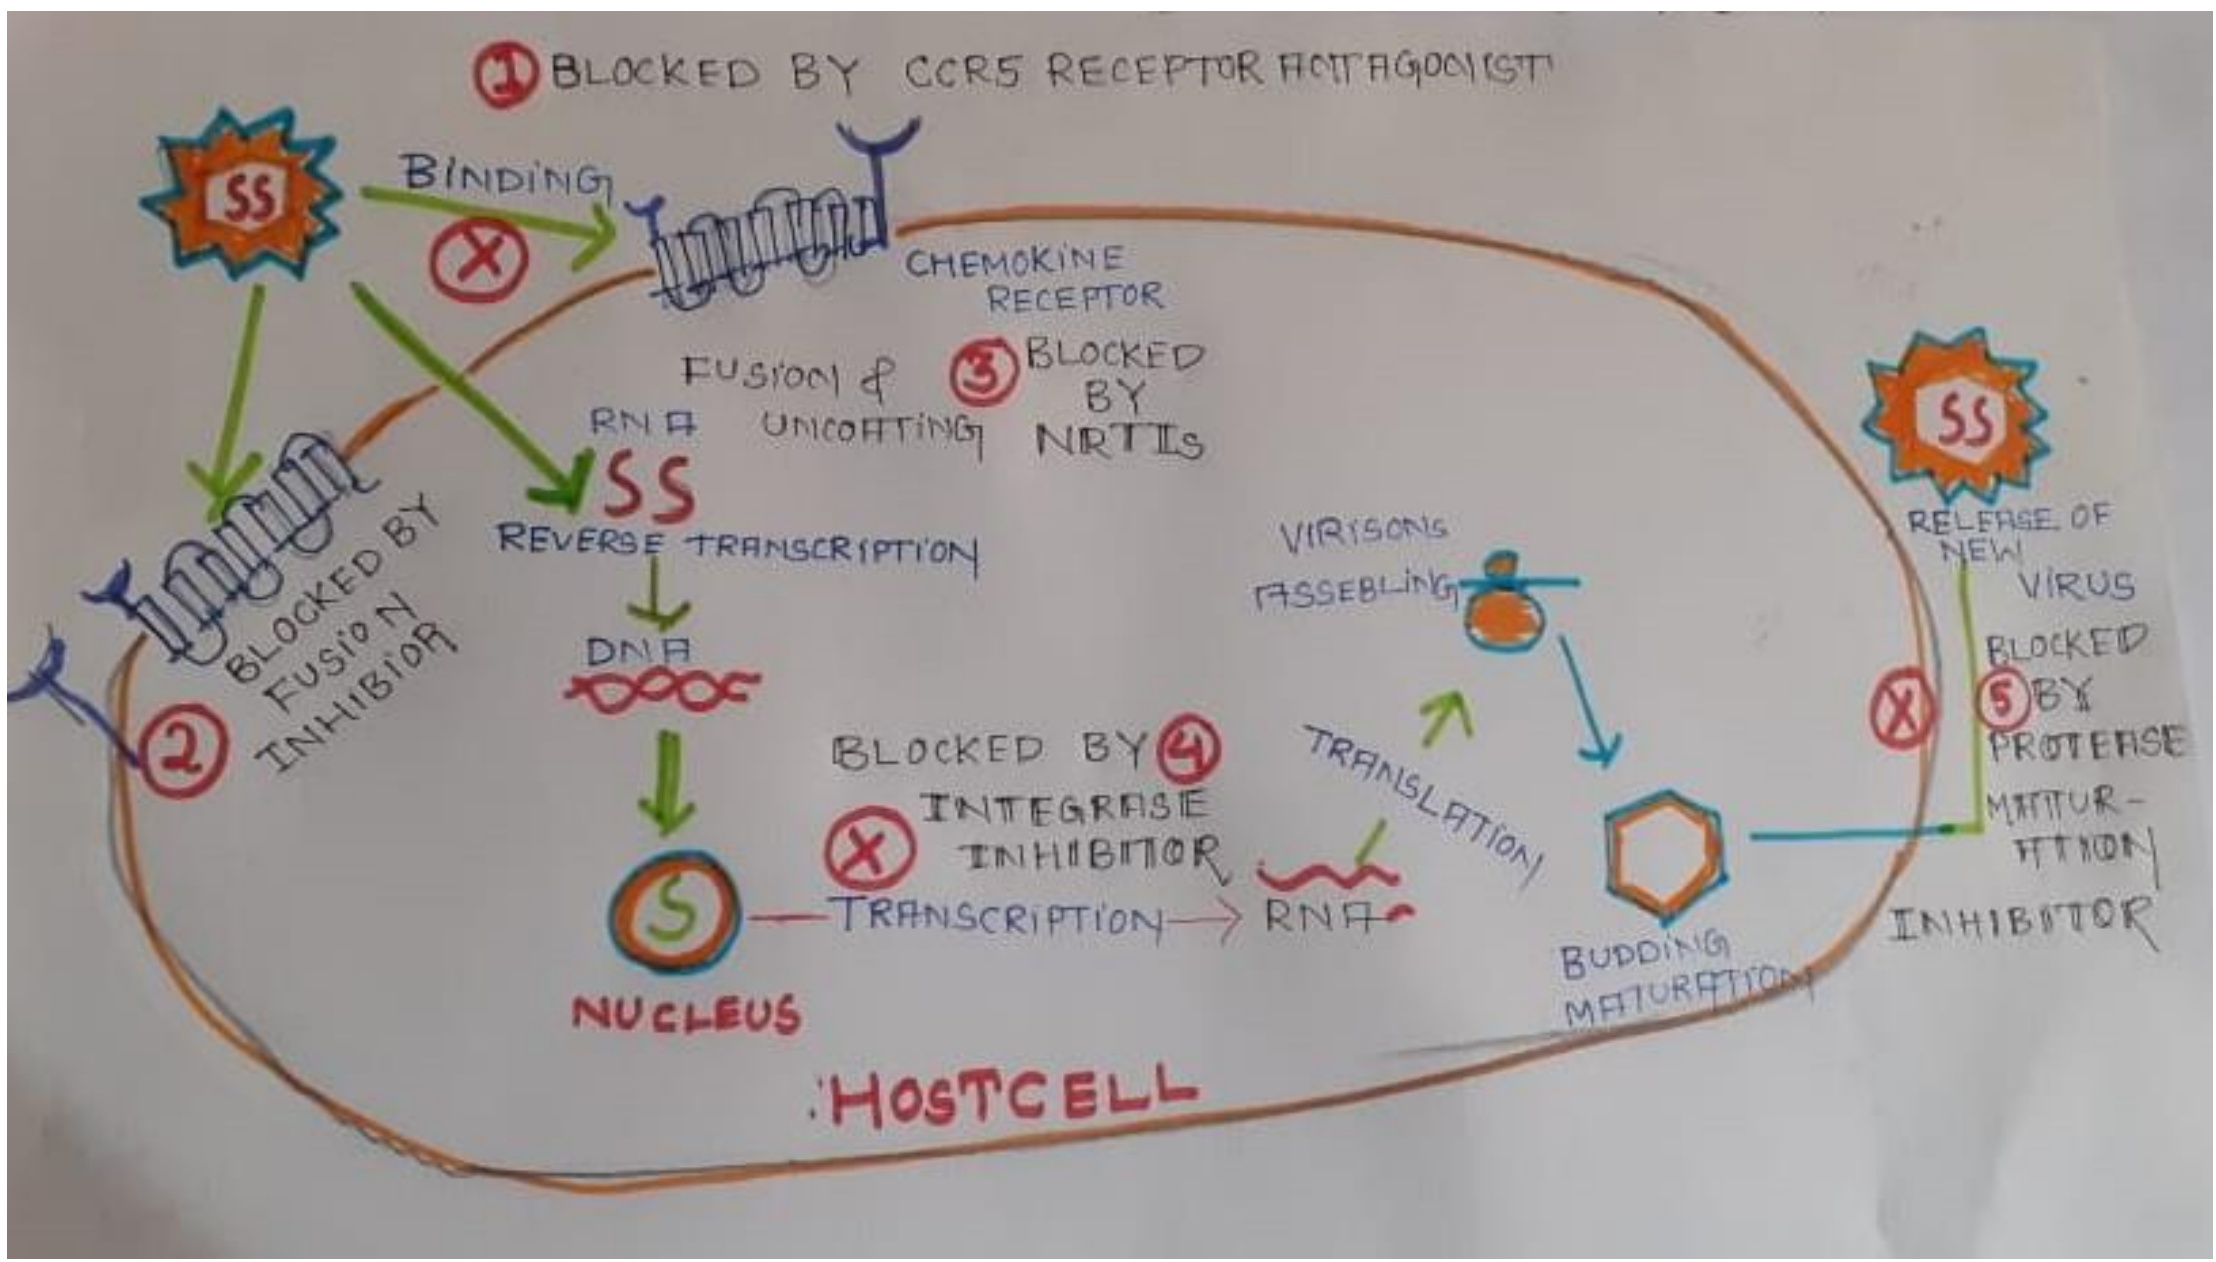 1 BLOCKED BY CCR5 RECEPTOR ANTAGONIST
SS
BINDING
X
CHEMOKINE
RECEPTOR
FUSION &
UNCOATING
3 BLOCKED
BY
NRTIs
RNA
SS
REVERSE TRANSCRIPTION
DNA
BLOCKED BY
FUSION
INHIBIOR
2
BLOCKED BY 4
INTEGRASE
INHIBITOR
X
S
TRANSCRIPTION
RNA
NUCLEUS
TRANSLATION
VIRISONS
ASSEBLING
BUDDING
MATURATION
SS
RELEASE OF
NEW
VIRUS
X
BLOCKED
5 BY
PROTEASE
MATUR-
ATION
INHIBITOR
HOSTCELL